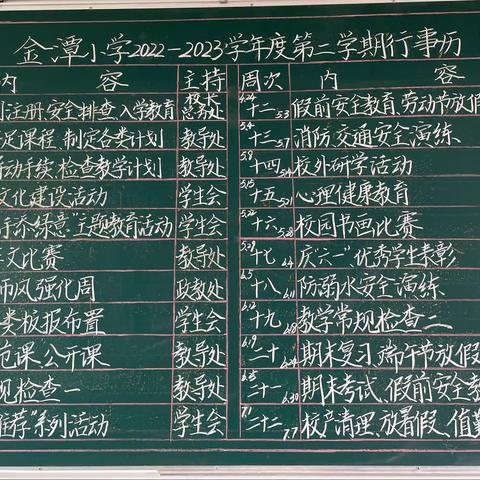 金潭小学2022-2023学年度第二学期行事历
内 容 主持 周次 内 容
注册、安全排查、入学教育 校长 总务处 十二 5.3 假前安全教育、劳动节放假
足课程、制定各类计划 教导处 5.4 十三 5.7 消防、交通安全演练、
动手续、检查教学计划 教导处 5.8 十四 校外研学活动
文化建设活动 学生会 十五 心理健康教育
添绿意"主题教育活动 学生会 5.22 十六 5.28 校园书画比赛
文比赛 教导处 5.29 十七 6.4 庆六一"优秀学生表彰
师风强化周 政教处 6.5 十八 6.11 防溺水安全演练
类板报布置 学生会 6.12 十九 6.18 教学常规检查二
范课、公开课 教导处 6.19 二十 期末复习、端午节放假
规检查一 教导处 二十一 6.30 期末考试、假前安全教
推荐"系列活动 学生会 7.1 二十二 7.7 校产清理、放暑假、值勤